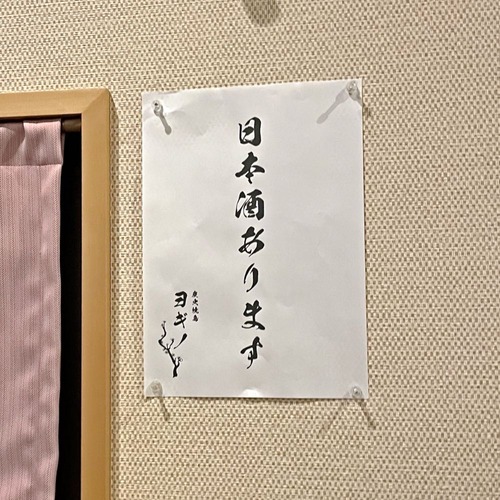 日本酒あります
炭火焼鳥
ヨギノ